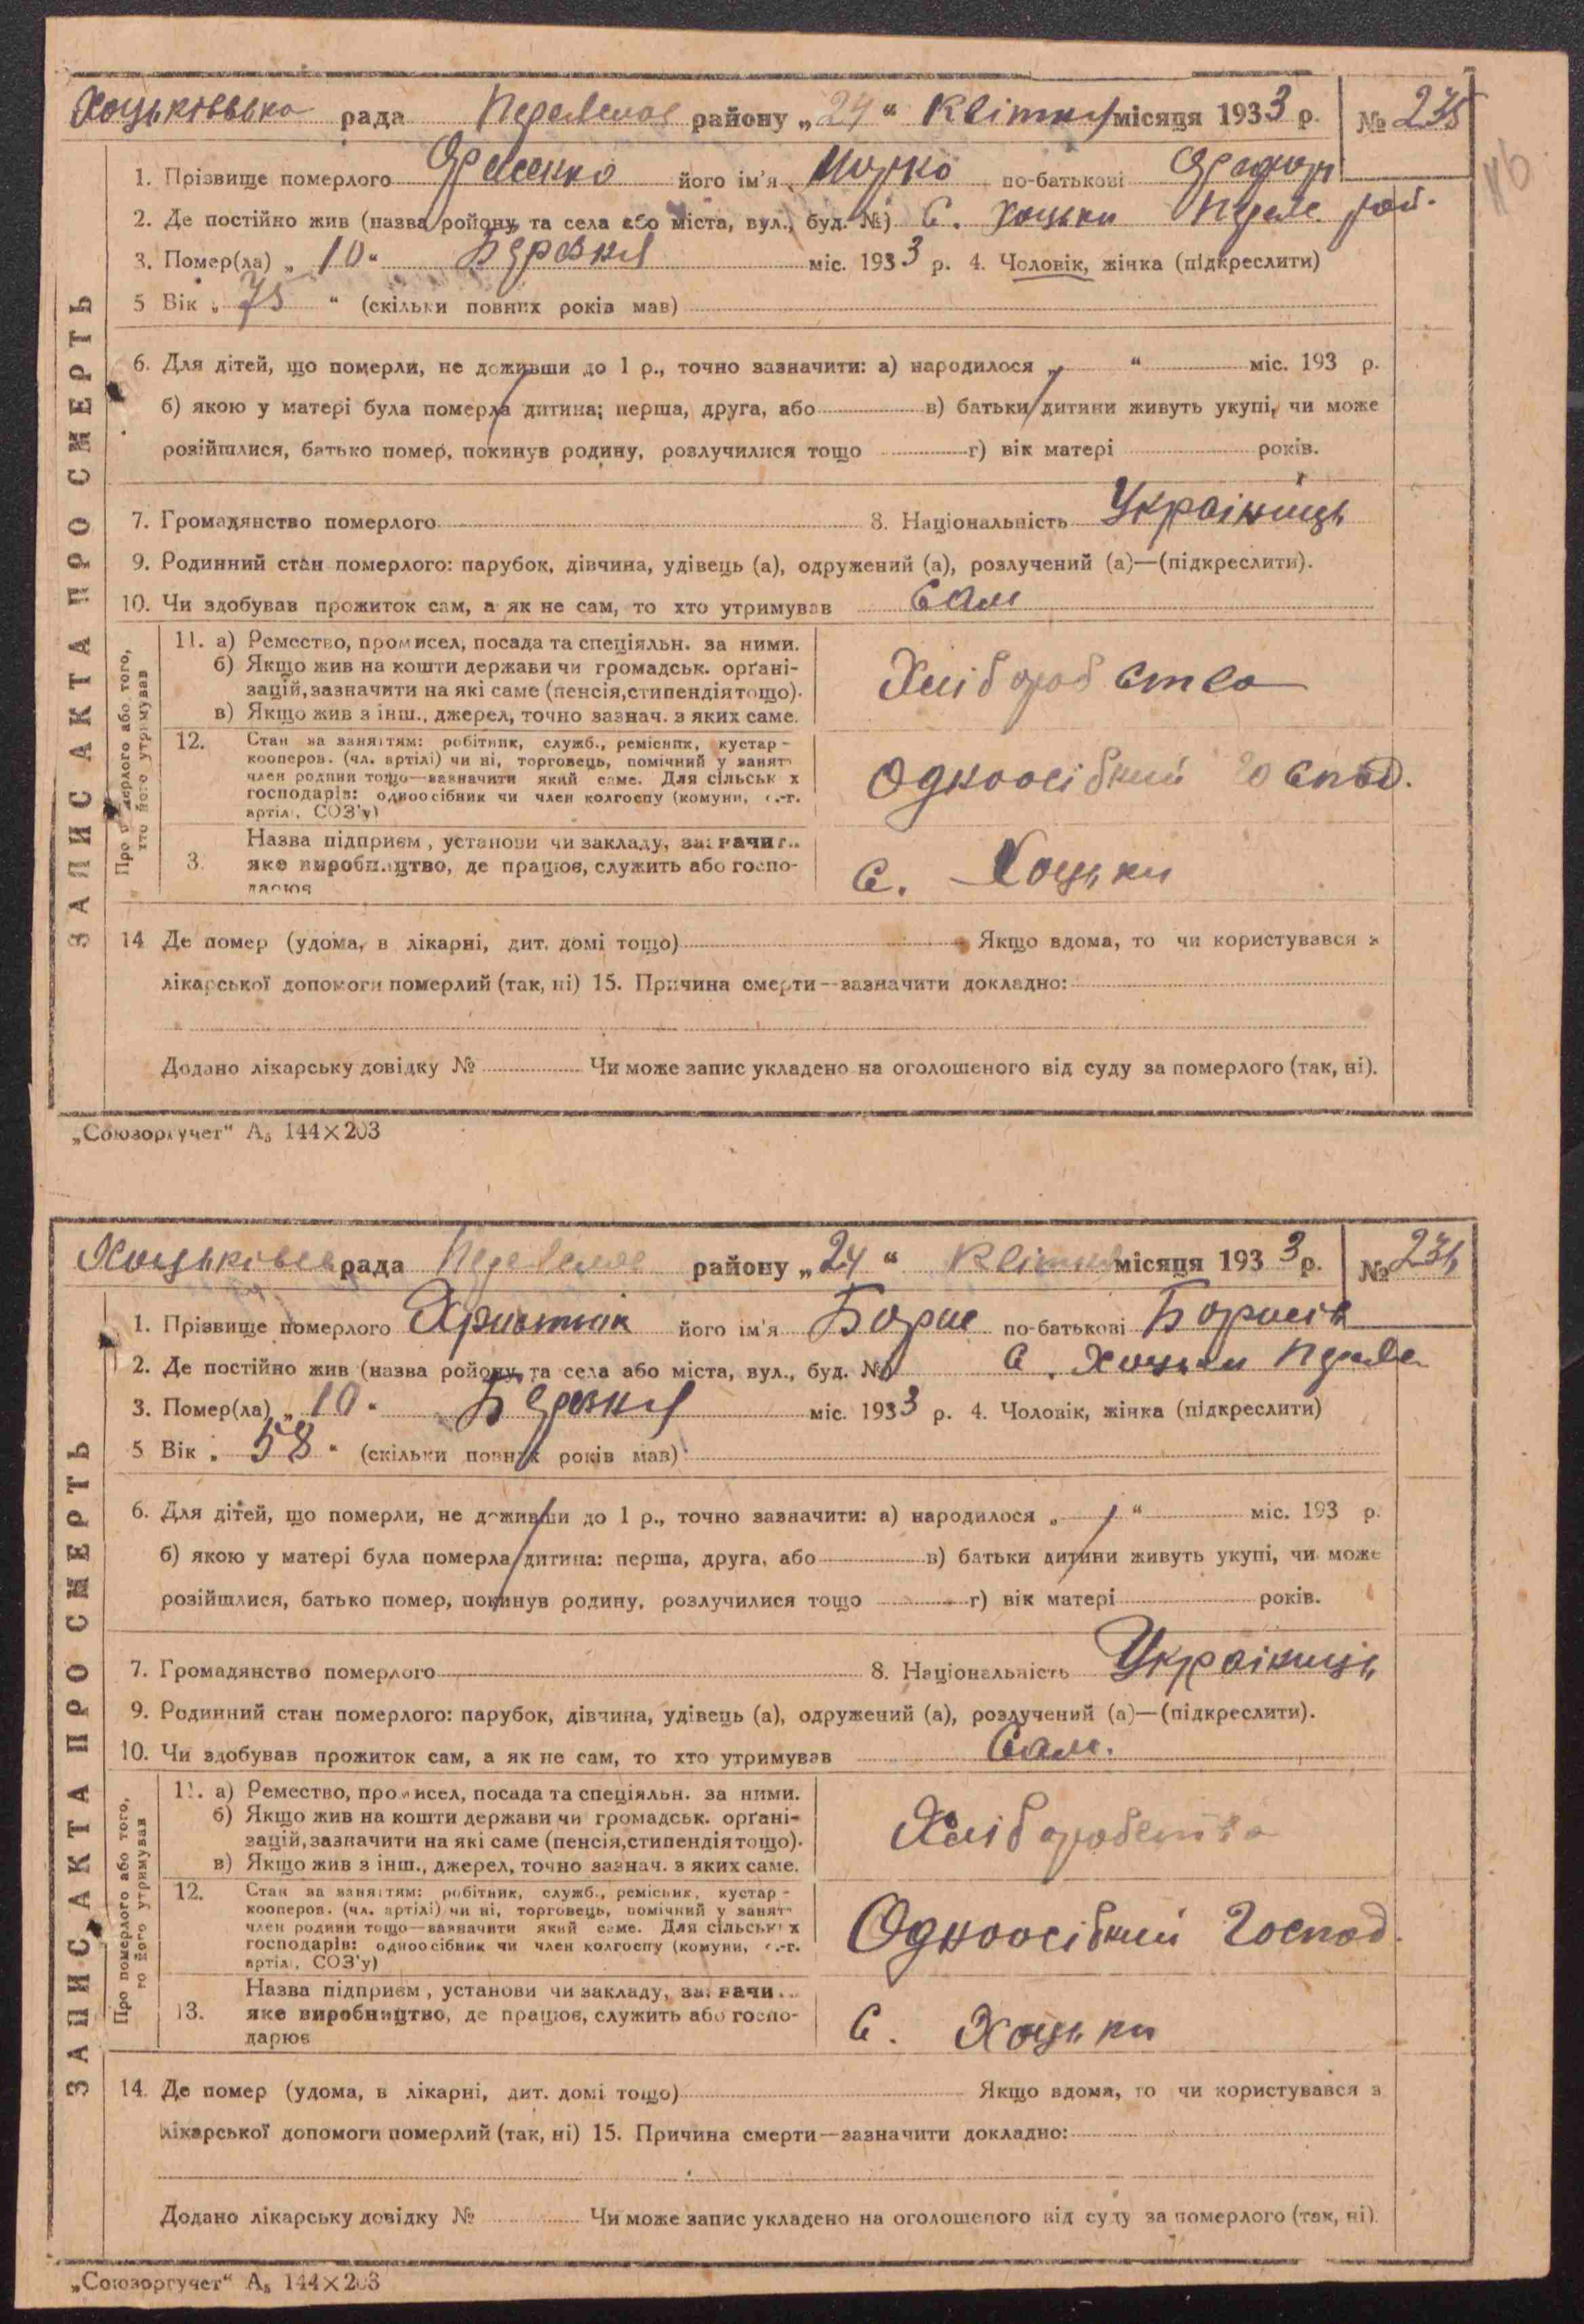 Хоцьківська рада Переяслав району „24“ Квітня місяця 1933 р. № 235
1. Прізвище померлого його ім'я Марко по-батькові
2. Де постійно жив (назва ройону, та села або міста, вул., буд. №) С. Хоцьки Переяс. рай.
3. Помер(ла) „10“ Березня міс. 1933 р. 4. Чоловік, жінка (підкреслити)
5 Вік „75“ (скільки повних років мав)
6. Для дітей, що померли, не доживши до 1 р., точно зазначити: а) народилося „ “ міс. 193 р.
б) якою у матері була померла дитина; перша, друга, або в) батьки дитини живуть укупі, чи може
розійшлися, батько помер, покинув родину, розлучилися тощо г) вік матері років.
7. Громадянство померлого 8. Національність Українець
9. Родинний стан померлого: парубок, дівчина, удівець (а), одружений (а), розлучений (а)—(підкреслити).
10. Чи здобував прожиток сам, а як не сам, то хто утримував Сам
ЗАПИС АКТА ПРО СМЕРТЬ
Про померлого або того,
хто його утримував
11. а) Ремество, промисел, посада та спеціяльн. за ними.
б) Якщо жив на кошти держави чи громадськ. орґані-
зацій, зазначити на які саме (пенсія, стипендія тощо).
в) Якщо жив з інш., джерел, точно зазнач. з яких саме.
Хліборобство
12. Стан за заняттям: робітник, служб., ремісник, кустар-
кооперов. (чл. артілі) чи ні, торговець, помічний у занят
член родини тощо—зазначити який саме. Для сільськ х
господарів: одноосібник чи член колгоспу (комуни, с.-г.
артілі, СОЗ'у)
Одноосібний господ.
3. Назва підприєм, установи чи закладу, зазначи..
яке виробництво, де працює, служить або госпо-
дарює
С. Хоцьки
14 Де помер (удома, в лікарні, дит. домі тощо) Якщо вдома, то чи користувався з
лікарської допомоги померлий (так, ні) 15. Причина смерти—зазначити докладно:
Додано лікарську довідку № Чи може запис укладено на оголошеного від суду за померлого (так, ні).
„Союзоргучет“ А₅ 144×203
Хоцьківська рада Переяслав району „24“ Квітня місяця 1933 р. № 236
1. Прізвище померлого його ім'я Борис по-батькові Борисів
2. Де постійно жив (назва ройону, та села або міста, вул., буд. №) С. Хоцьки Переяс
3. Помер(ла) „10“ Березня міс. 1933 р. 4. Чоловік, жінка (підкреслити)
5 Вік „58“ (скільки повних років мав)
6. Для дітей, що померли, не доживши до 1 р., точно зазначити: а) народилося „ “ міс. 193 р.
б) якою у матері була померла дитина: перша, друга, або в) батьки дитини живуть укупі, чи може
розійшлися, батько помер, покинув родину, розлучилися тощо г) вік матері років.
7. Громадянство померлого 8. Національність Українець
9. Родинний стан померлого: парубок, дівчина, удівець (а), одружений (а), розлучений (а)—(підкреслити).
10. Чи здобував прожиток сам, а як не сам, то хто утримував Сам.
ЗАПИС АКТА ПРО СМЕРТЬ
Про померлого або того,
то його утримував
11. а) Ремество, промисел, посада та спеціяльн. за ними.
б) Якщо жив на кошти держави чи громадськ. орґані-
зацій, зазначити на які саме (пенсія, стипендія тощо).
в) Якщо жив з інш., джерел, точно зазнач. з яких саме.
Хліборобство
12. Стан за заняттям: робітник, служб., ремісник, кустар-
кооперов. (чл. артілі) чи ні, торговець, помічний у занят
член родини тощо—зазначити який саме. Для сільськ х
господарів: одноосібник чи член колгоспу (комуни, с.-г.
артілі, СОЗ'у)
Одноосібний Господ.
13. Назва підприєм, установи чи закладу, зазначи...
яке виробництво, де працює, служить або госпо-
дарює
С. Хоцьки
14. Де помер (удома, в лікарні, дит. домі тощо) Якщо вдома, то чи користувався з
лікарської допомоги померлий (так, ні) 15. Причина смерти—зазначити докладно:
Додано лікарську довідку № Чи може запис укладено на оголошеного від суду за померлого (так, ні).
„Союзоргучет“ А₅ 144×203